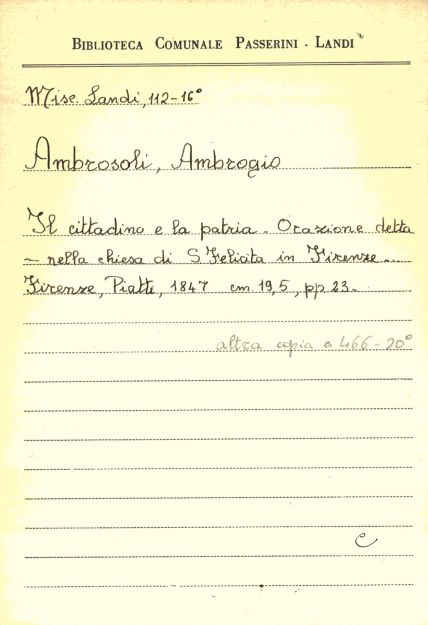 BIBLIOTECA COMUNALE PASSERINI - LANDI
Misc. Landi, 112-16°
Ambrosoli, Ambrogio
Il cittadino e la patria. Orazione detta
- nella chiesa di S. Felicita in Firenze. -
Firenze, Piatti, 1847 cm 19,5, pp 23.
altra copia a 466-20°
C